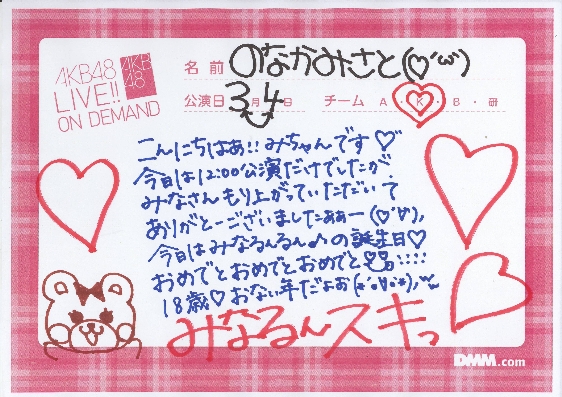 AKB48
LIVE!!
ON DEMAND
AKB
48
名前 のなかみさと(♡'ω')
公演日 3月4日 チーム A・K・B・研
こんにちはあ!!みちゃんです♡
今日は12:00公演だけでしたが、
みなさんもり上がっていただいて
ありがとーございましたぁぁー(♡'∀'),
今日はみなるんるん♪の誕生日♡
おめでとおめでとおめでと!!!!
18歳♡おない年だよぉ(*°∀°*),
みなるんスキっ
DMM.com